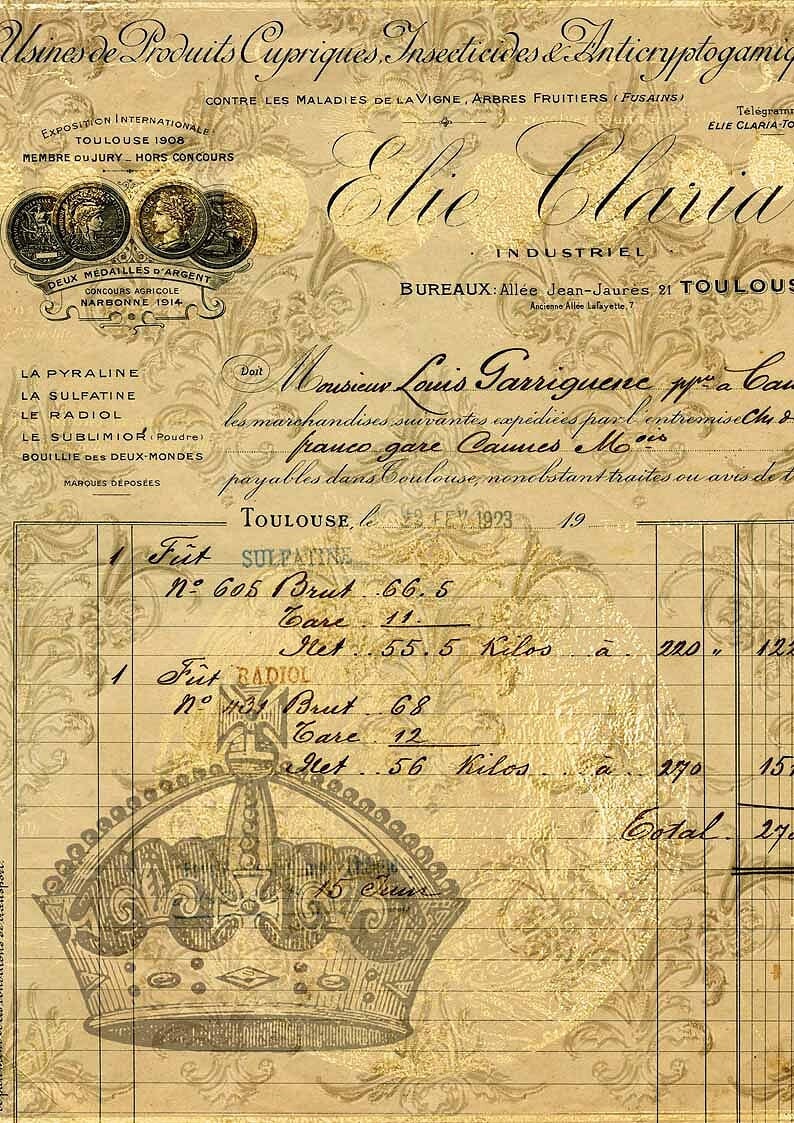 Usines de Produits Cupriques, Insecticides & Anticryptogamiq
CONTRE LES MALADIES DE LA VIGNE, ARBRES FRUITIERS (FUSAINS)
Télégramm
ELIE CLARIA-TO
EXPOSITION INTERNATIONALE
TOULOUSE 1908
MEMBRE DU JURY _ HORS CONCOURS
Elie Claria
INDUSTRIEL
DEUX MÉDAILLES D'ARGENT
CONCOURS AGRICOLE
NARBONNE 1914
BUREAUX: Allée Jean-Jaurès, 21 TOULOUS
Ancienne Allée Lafayette, 7
LA PYRALINE
LA SULFATINE
LE RADIOL
LE SUBLIMIOR (Poudre)
BOUILLIE DES DEUX-MONDES
MARQUES DÉPOSÉES
Doit Monsieur Louis Garriguenc ppre à Cau
les marchandises suivantes expédiées par l'entremise Ch. d
franco gare Caunes Moois
payables dans Toulouse, nonobstant traites ou avis de t
TOULOUSE, le FEV 1923 19
1 Fût SULFATINE
No 605 Brut 66.5
Tare 11.
Net 55.5 Kilos à 220 " 122
1 Fût RADIOL
No 431 Brut 68
Tare 12
Net 56 Kilos à 270 151
Total 273
15 Juin